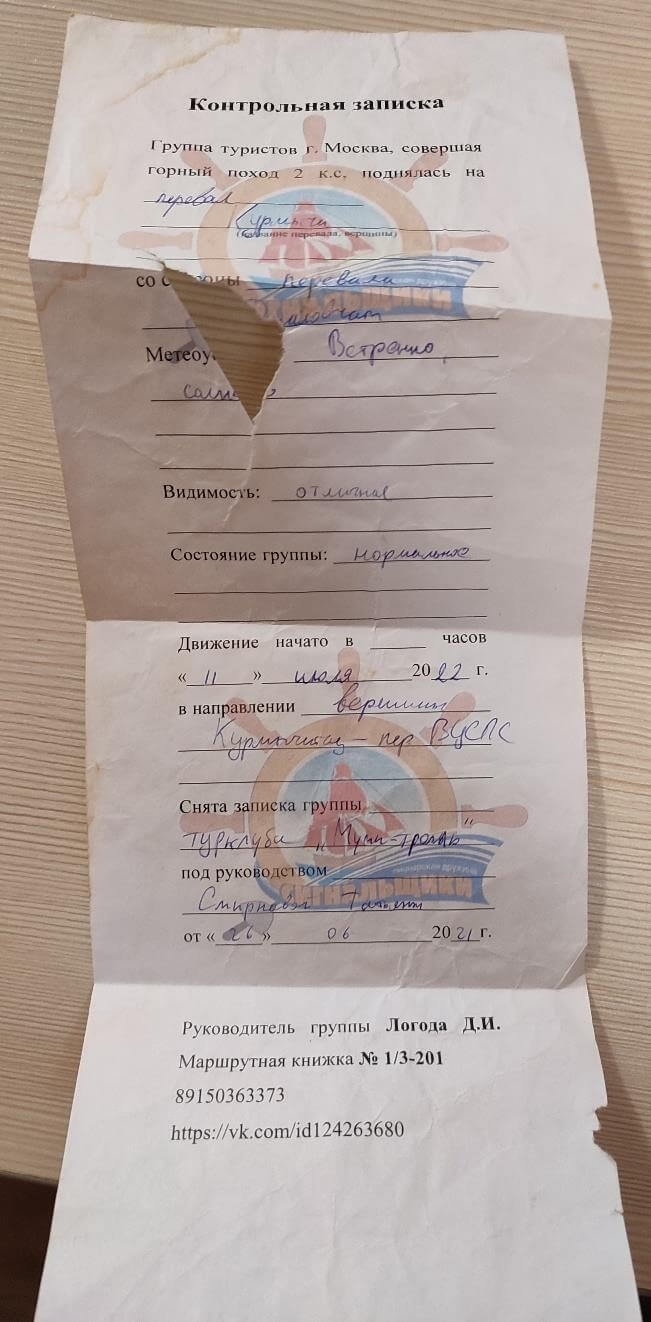 Контрольная записка
Группа туристов г. Москва, совершая
горный поход 2 к.с, поднялась на
перевал
Курмычи
(название перевала, вершины)
со стороны перевала
Метеоу Ветренно,
Видимость: отличная
Состояние группы: нормальное
Движение начато в ______ часов
« 11 » июля 2022 г.
в направлении вершин
Курмычитау – пер ВЦСПС
Снята записка группы
турклуба "Муми-тролль"
под руководством
СИГНАЛЬЩИКИ
Смирновой Татьяны
от « 26 » 06 2021 г.
Руководитель группы Логода Д.И.
Маршрутная книжка № 1/3-201
89150363373
https://vk.com/id124263680